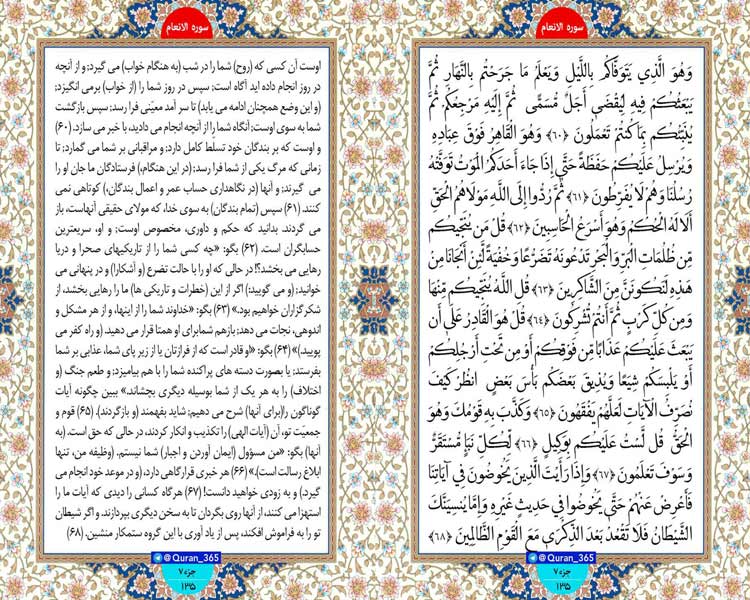 سوره الانعام
وَهُوَ الَّذِي يَتَوَفَّاكُم بِاللَّيْلِ وَيَعْلَمُ مَا جَرَحْتُم بِالنَّهَارِ ثُمَّ
يَبْعَثُكُمْ فِيهِ لِيُقْضَى أَجَلٌ مُّسَمًّى ثُمَّ إِلَيْهِ مَرْجِعُكُمْ ثُمَّ
يُنَبِّئُكُم بِمَا كُنتُمْ تَعْمَلُونَ ﴿۶۰﴾ وَهُوَ الْقَاهِرُ فَوْقَ عِبَادِهِ
وَيُرْسِلُ عَلَيْكُم حَفَظَةً حَتَّىَ إِذَا جَاء أَحَدَكُمُ الْمَوْتُ تَوَفَّتْهُ
رُسُلُنَا وَهُمْ لاَ يُفَرِّطُونَ ﴿۶۱﴾ ثُمَّ رُدُّوا إِلَى اللَّهِ مَوْلاَهُمُ الْحَقِّ
أَلاَ لَهُ الْحُكْمُ وَهُوَ أَسْرَعُ الْحَاسِبِينَ ﴿۶۲﴾ قُلْ مَن يُنَجِّيكُم
مِّن ظُلُمَاتِ الْبَرِّ وَالْبَحْرِ تَدْعُونَهُ تَضَرُّعًا وَخُفْيَةً لَّئِنْ أَنجَانَا مِنْ
هَذِهِ لَنَكُونَنَّ مِنَ الشَّاكِرِينَ ﴿۶۳﴾ قُلِ اللَّهُ يُنَجِّيكُم مِّنْهَا
وَمِن كُلِّ كَرْبٍ ثُمَّ أَنتُمْ تُشْرِكُونَ ﴿۶۴﴾ قُلْ هُوَ الْقَادِرُ عَلَى أَن
يَبْعَثَ عَلَيْكُمْ عَذَابًا مِّن فَوْقِكُمْ أَوْ مِن تَحْتِ أَرْجُلِكُمْ
أَوْ يَلْبِسَكُمْ شِيَعًا وَيُذِيقَ بَعْضَكُم بَأْسَ بَعْضٍ انظُرْ كَيْفَ
نُصَرِّفُ الآيَاتِ لَعَلَّهُمْ يَفْقَهُونَ ﴿۶۵﴾ وَكَذَّبَ بِهِ قَوْمُكَ وَهُوَ
الْحَقُّ قُل لَّسْتُ عَلَيْكُم بِوَكِيلٍ ﴿۶۶﴾ لِّكُلِّ نَبَإٍ مُّسْتَقَرٌّ
وَسَوْفَ تَعْلَمُونَ ﴿۶۷﴾ وَإِذَا رَأَيْتَ الَّذِينَ يَخُوضُونَ فِي آيَاتِنَا
فَأَعْرِضْ عَنْهُمْ حَتَّى يَخُوضُوا فِي حَدِيثٍ غَيْرِهِ وَإِمَّا يُنسِيَنَّكَ
الشَّيْطَانُ فَلاَ تَقْعُدْ بَعْدَ الذِّكْرَى مَعَ الْقَوْمِ الظَّالِمِينَ ﴿۶۸﴾
@Quran_365
جزء۷
۱۳۵
سوره الانعام
اوست آن کسی که (روح) شما را در شب (به هنگام خواب) می گیرد؛ و از آنچه
در روز انجام داده اید آگاه است؛ سپس در روز شما را (از خواب) برمی انگیزد؛
(و این وضع همچنان ادامه می یابد) تا سر آمد معیّنی فرا رسد؛ سپس بازگشت
شما به سوی اوست؛ آنگاه شما را از آنچه انجام می دادید، با خبر می سازد. (۶۰)
و اوست که بر بندگان خود تسلّط کامل دارد؛ و مراقبانی بر شما می گمارد؛ تا
زمانی که مرگ یکی از شما فرا رسد؛ (در این هنگام،) فرستادگان ما جان او را
می گیرند؛ و آنها (در نگاهداری حساب عمر و اعمال بندگان،) کوتاهی نمی
کنند. (۶۱) سپس (تمام بندگان) به سوی خدا، که مولای حقیقی آنهاست، باز
می گردند. بدانید که حکم و داوری، مخصوص اوست؛ و او، سریعترین
حسابگران است. (۶۲) بگو: «چه کسی شما را از تاریکیهای صحرا و دریا
رهایی می بخشد؟! در حالی که او را با حالت تضرع (و آشکارا) و در پنهانی می
خوانید؛ (و می گویید:) اگر از این (خطرات و تاریکی ها) ما را رهایی بخشد، از
شکرگزاران خواهیم بود.» (۶۳) بگو: «خداوند شما را از اینها، و از هر مشکل و
اندوهی، نجات می دهد؛ بازهم شمابرای او همتا قرار می دهید. (و راه کفر می
پویید.)» (۶۴) بگو: «او قادر است که از فرازتان یا از زیر پای شما، عذابی بر شما
بفرستد؛ یا بصورت دسته های پراکنده شما را با هم بیامیزد؛ و طعم جنگ (و
اختلاف) را به هر یک از شما بوسیله دیگری بچشاند.» ببین چگونه آیات
گوناگون را(برای آنها) شرح می دهیم؛ شاید بفهمند (و بازگردند). (۶۵) قوم و
جمعیّت تو، آن (آیات الهی) را تکذیب و انکار کردند، در حالی که حق است. (به
آنها) بگو: «من مسؤول (ایمان آوردن و اجبار) شما نیستم. (وظیفه من، تنها
ابلاغ رسالت است).» (۶۶) هر خبری قرارگاهی دارد، (و در موعد خود انجام می
گیرد). و به زودی خواهید دانست! (۶۷) هرگاه کسانی را دیدی که آیات ما را
استهزا می کنند، از آنها روی بگردان تا به سخن دیگری بپردازند. و اگر شیطان
تو را به فراموش افکند، پس از یاد آوری با این گروه ستمکار منشین. (۶۸)
@Quran_365
جزء۷
۱۳۵